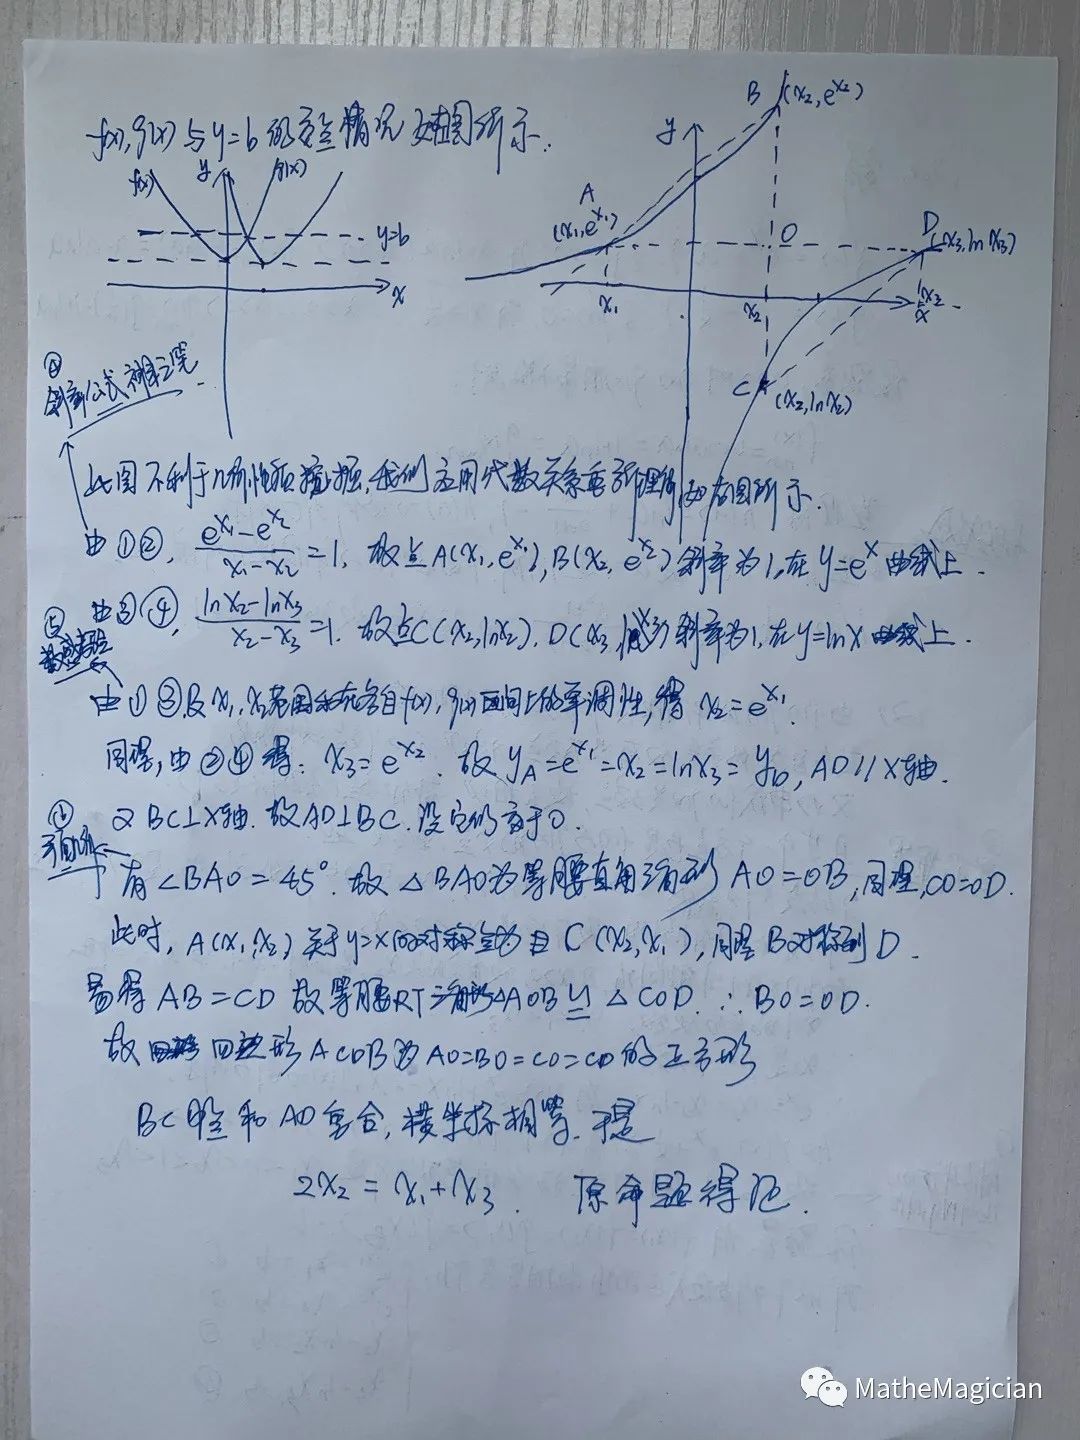 f(x), g(x) 与 y=b 的交点情况如图所示.
f(x) y g(x)
y=b
x
y
B (x₂, e^{x₂})
A
(x₁, e^{x₁})
O
D
(x₃, ln x₃)
x₁ x₂ x₃
x
C (x₂, ln x₂)
④
斜率公式
此图不利于几何性质挖掘, 我们应用代数关系重新理解 如右图所示.
由①②, \frac{e^{x₁}-e^{x₂}}{x₁-x₂}=1, 故点A(x₁, e^{x₁}), B(x₂, e^{x₂}) 斜率为1, 在 y=e^x 曲线上.
⑤
由③④, \frac{ln x₂-ln x₃}{x₂-x₃}=1. 故点C(x₂, ln x₂), D(x₃, ) 斜率为1, 在 y=ln x 曲线上.
由①③及x₁, x₂范围和在各自f(x), g(x)区间上的单调性, 得 x₂=e^{x₁}.
同理, 由②④得: x₃=e^{x₂}. 故 y_A=e^{x₁}=x₂=ln x₃=y_D, AD // x轴.
⑥
又BC⊥x轴. 故AD⊥BC. 设它们交于O.
有∠BAO=45°. 故△BAO为等腰直角三角形 AO=OB, 同理, CO=OD.
此时, A(x₁, x₂) 关于y=x的对称点为 C(x₂, x₁), 同理B对称到D.
易得AB=CD 故等腰RT三角形△AOB≌△COD. ∴BO=OD.
故四边形ACDB为AO=BO=CO=CD的正方形
BC中点和AD重合, 横坐标相等. 于是
2x₂=x₁+x₃. 原命题得证.
MatheMagician